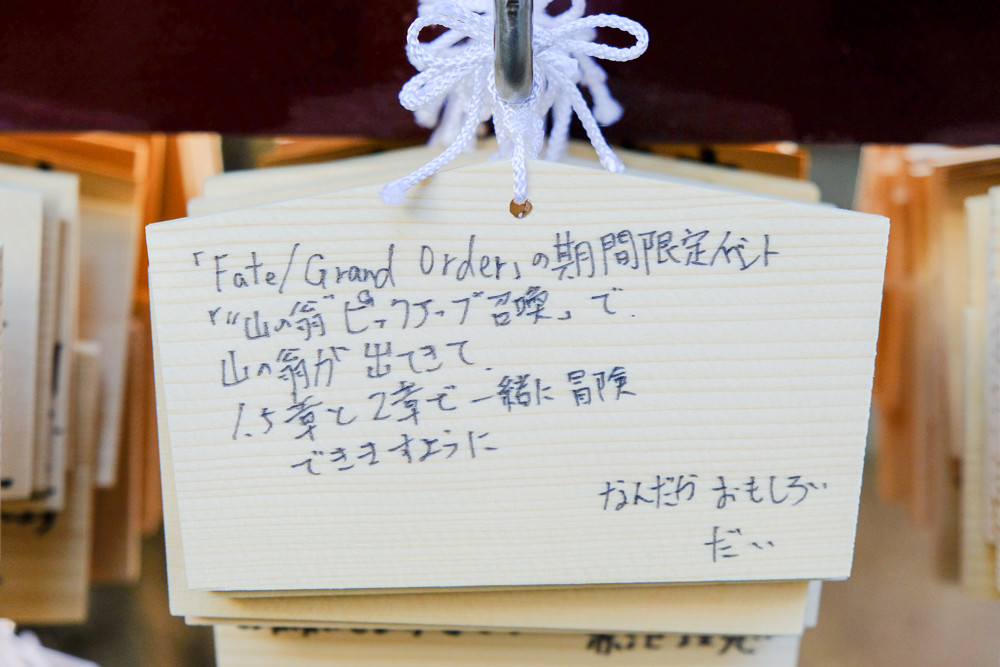 「Fate/Grand Order」の期間限定イベント
『"山の翁"ピックアップ召喚」で、
山の翁が出てきて、
1.5章と2章で一緒に冒険
できますように
なんだら おもしろい
だい